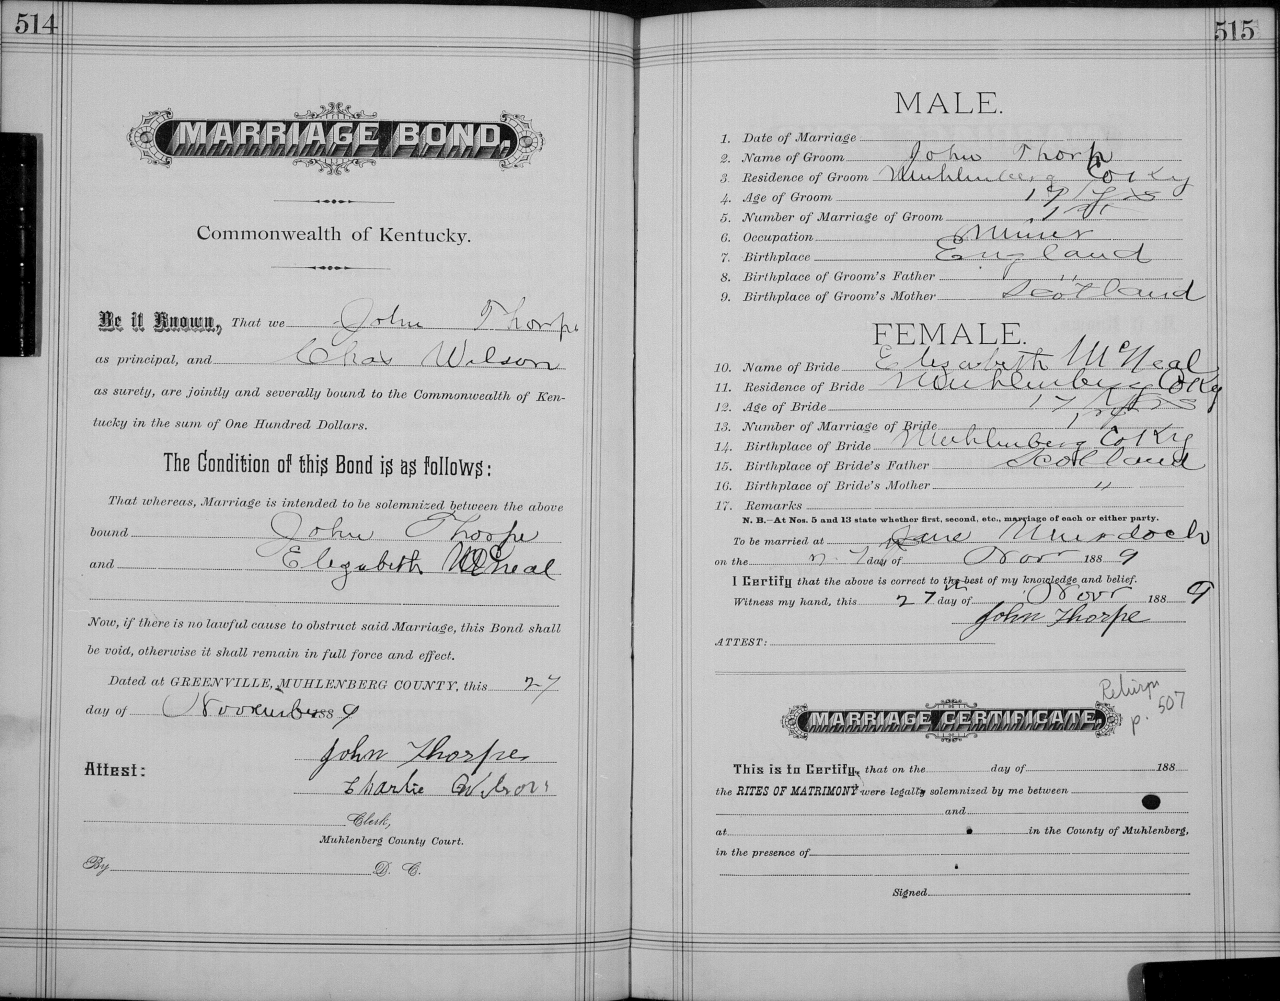 514
MARRIAGE BOND,
Commonwealth of Kentucky.
Be it Known, That we John Thorpe
as principal, and Chas Wilson
as surety, are jointly and severally bound to the Commonwealth of Ken-
tucky in the sum of One Hundred Dollars.
The Condition of this Bond is as follows:
That whereas, Marriage is intended to be solemnized between the above
bound John Thorpe
and Elezabeth McNeal
Now, if there is no lawful cause to obstruct said Marriage, this Bond shall
be void, otherwise it shall remain in full force and effect.
Dated at GREENVILLE, MUHLENBERG COUNTY, this 27
day of November 1889
John Thorpe
Attest:
Charlie Wilson
Clerk,
Muhlenberg County Court.
By D. C.
515
MALE.
1. Date of Marriage
2. Name of Groom John Thorp
3. Residence of Groom Muhlenberg Co Ky
4. Age of Groom 19 yrs
5. Number of Marriage of Groom 1st
6. Occupation Miner
7. Birthplace England
8. Birthplace of Groom's Father "
9. Birthplace of Groom's Mother Scotland
FEMALE.
10. Name of Bride Elezabeth McNeal
11. Residence of Bride Muhlenberg Co Ky
12. Age of Bride 17 yrs
13. Number of Marriage of Bride 1st
14. Birthplace of Bride Muhlenberg Co Ky
15. Birthplace of Bride's Father Scotland
16. Birthplace of Bride's Mother "
17. Remarks
N. B.—At Nos. 5 and 13 state whether first, second, etc., marriage of each or either party.
To be married at Jane Murdoch
on the 27 day of Novr 1889
I Certify that the above is correct to the best of my knowledge and belief.
Witness my hand, this 27th day of Novr 1889
John Thorpe
ATTEST:
Return
p. 507
MARRIAGE CERTIFICATE.
This is to Certify, that on the day of 188
the RITES OF MATRIMONY were legally solemnized by me between
and
at in the County of Muhlenberg,
in the presence of
Signed